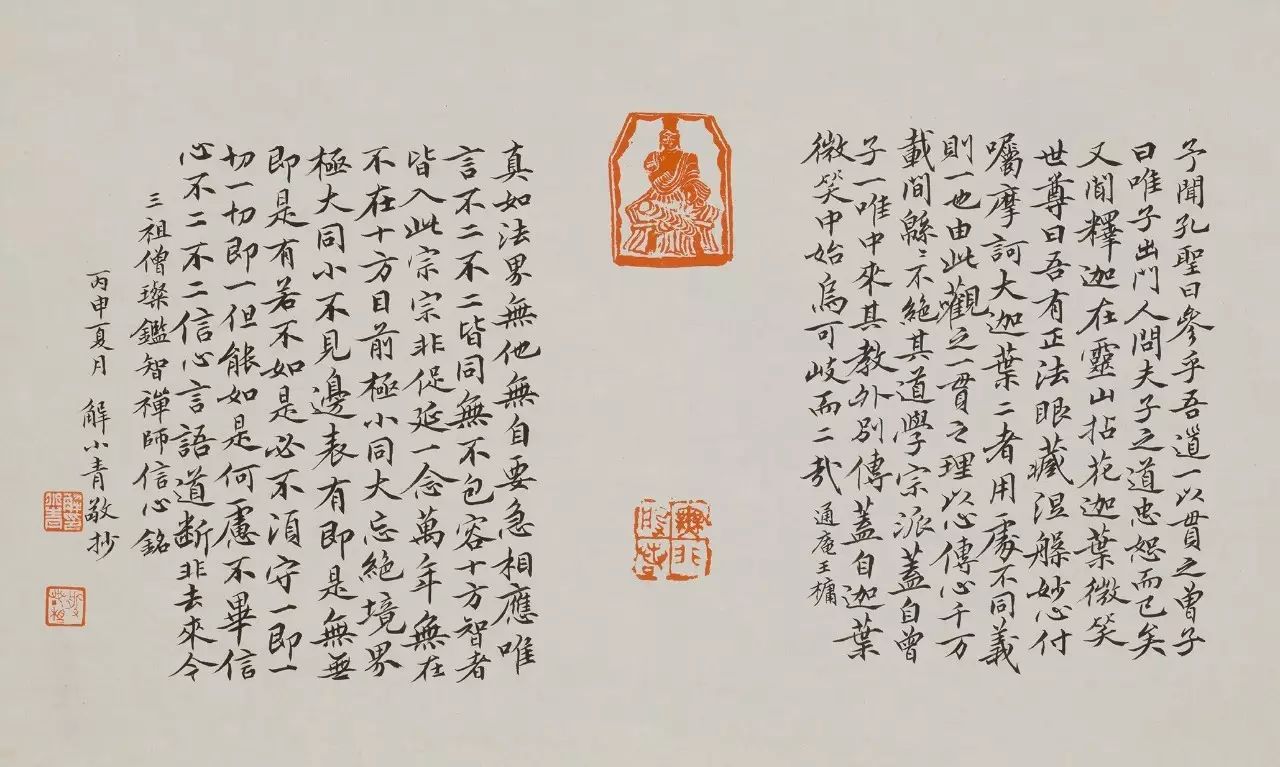 予聞孔聖曰參乎吾道一以貫之曾子
曰唯子出門人問夫子之道忠恕而已矣
又聞釋迦在靈山拈花迦葉微笑
世尊曰吾有正法眼藏涅槃妙心付
囑摩訶大迦葉二者用處不同義
則一也由此觀之一貫之理以心傳心千万
載間緜〻不絕其道學宗派蓋自曾
子一唯中來其教外別傳蓋自迦葉
微笑中始烏可岐而二哉 通庵王槦
真如法界無他無自要急相應唯
言不二不二皆同無不包容十方智者
皆入此宗宗非促延一念萬年無在
不在十方目前極小同大忘絕境界
極大同小不見邊表有即是無無
即是有若不如是必不須守一即一
切一切即一但能如是何慮不畢信
心不二不二信心言語道斷非去來今
三祖僧璨鑑智禪師信心銘
丙申夏月 解小青敬抄